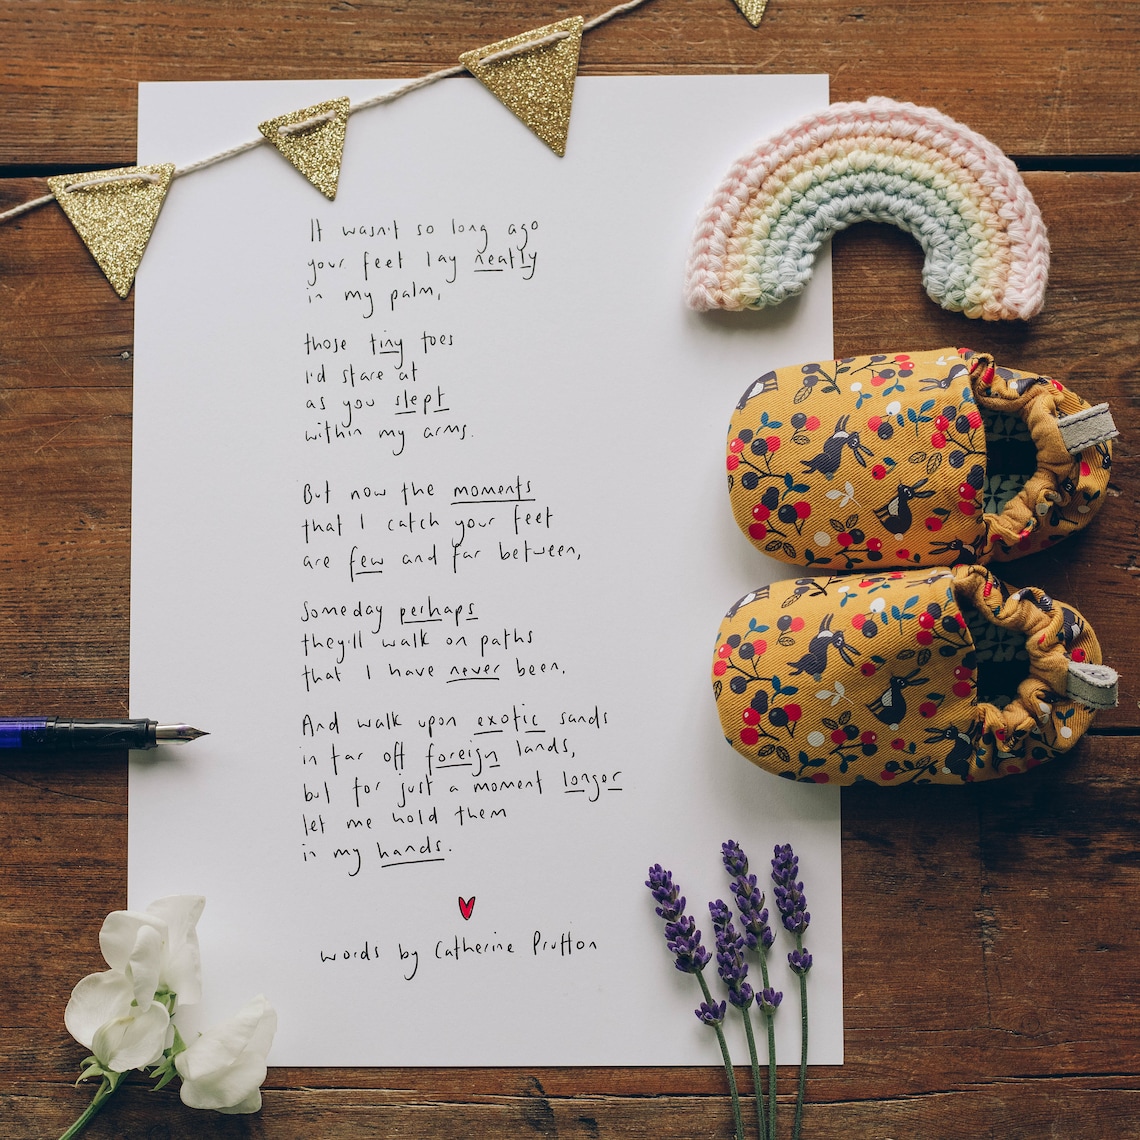 It wasn't so long ago
your feet lay neatly
in my palm,
those tiny toes
I'd stare at
as you slept
within my arms.
But now the moments
that I catch your feet
are few and far between,
Someday perhaps
they'll walk on paths
that I have never been.
And walk upon exotic sands
in far off foreign lands,
but for just a moment longer
let me hold them
in my hands.
words by Catherine Prutton